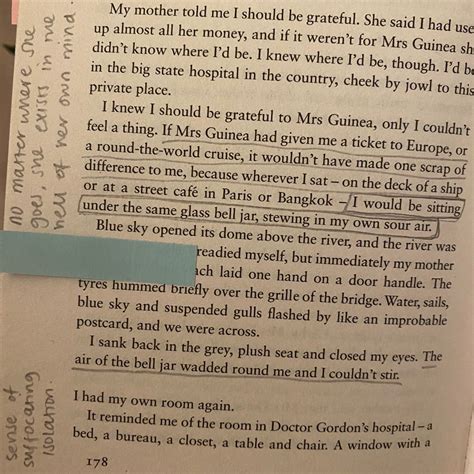 My mother told me I should be grateful. She said I had use
up almost all her money, and if it weren't for Mrs Guinea she
didn't know where I'd be. I knew where I'd be, though. I'd be
in the big state hospital in the country, cheek by jowl to this
private place.
I knew I should be grateful to Mrs Guinea, only I couldn't
feel a thing. If Mrs Guinea had given me a ticket to Europe, or
a round-the-world cruise, it wouldn't have made one scrap of
difference to me, because wherever I sat – on the deck of a ship
or at a street café in Paris or Bangkok – I would be sitting
under the same glass bell jar, stewing in my own sour air.
Blue sky opened its dome above the river, and the river was
readied myself, but immediately my mother
ach laid one hand on a door handle. The
tyres hummed briefly over the grille of the bridge. Water, sails,
blue sky and suspended gulls flashed by like an improbable
postcard, and we were across.
I sank back in the grey, plush seat and closed my eyes. The
air of the bell jar wadded round me and I couldn't stir.
I had my own room again.
It reminded me of the room in Doctor Gordon's hospital – a
bed, a bureau, a closet, a table and chair. A window with a
178
no matter where she
goes, she exists in the
hell of her own mind.
sense of
suffocating
isolation.